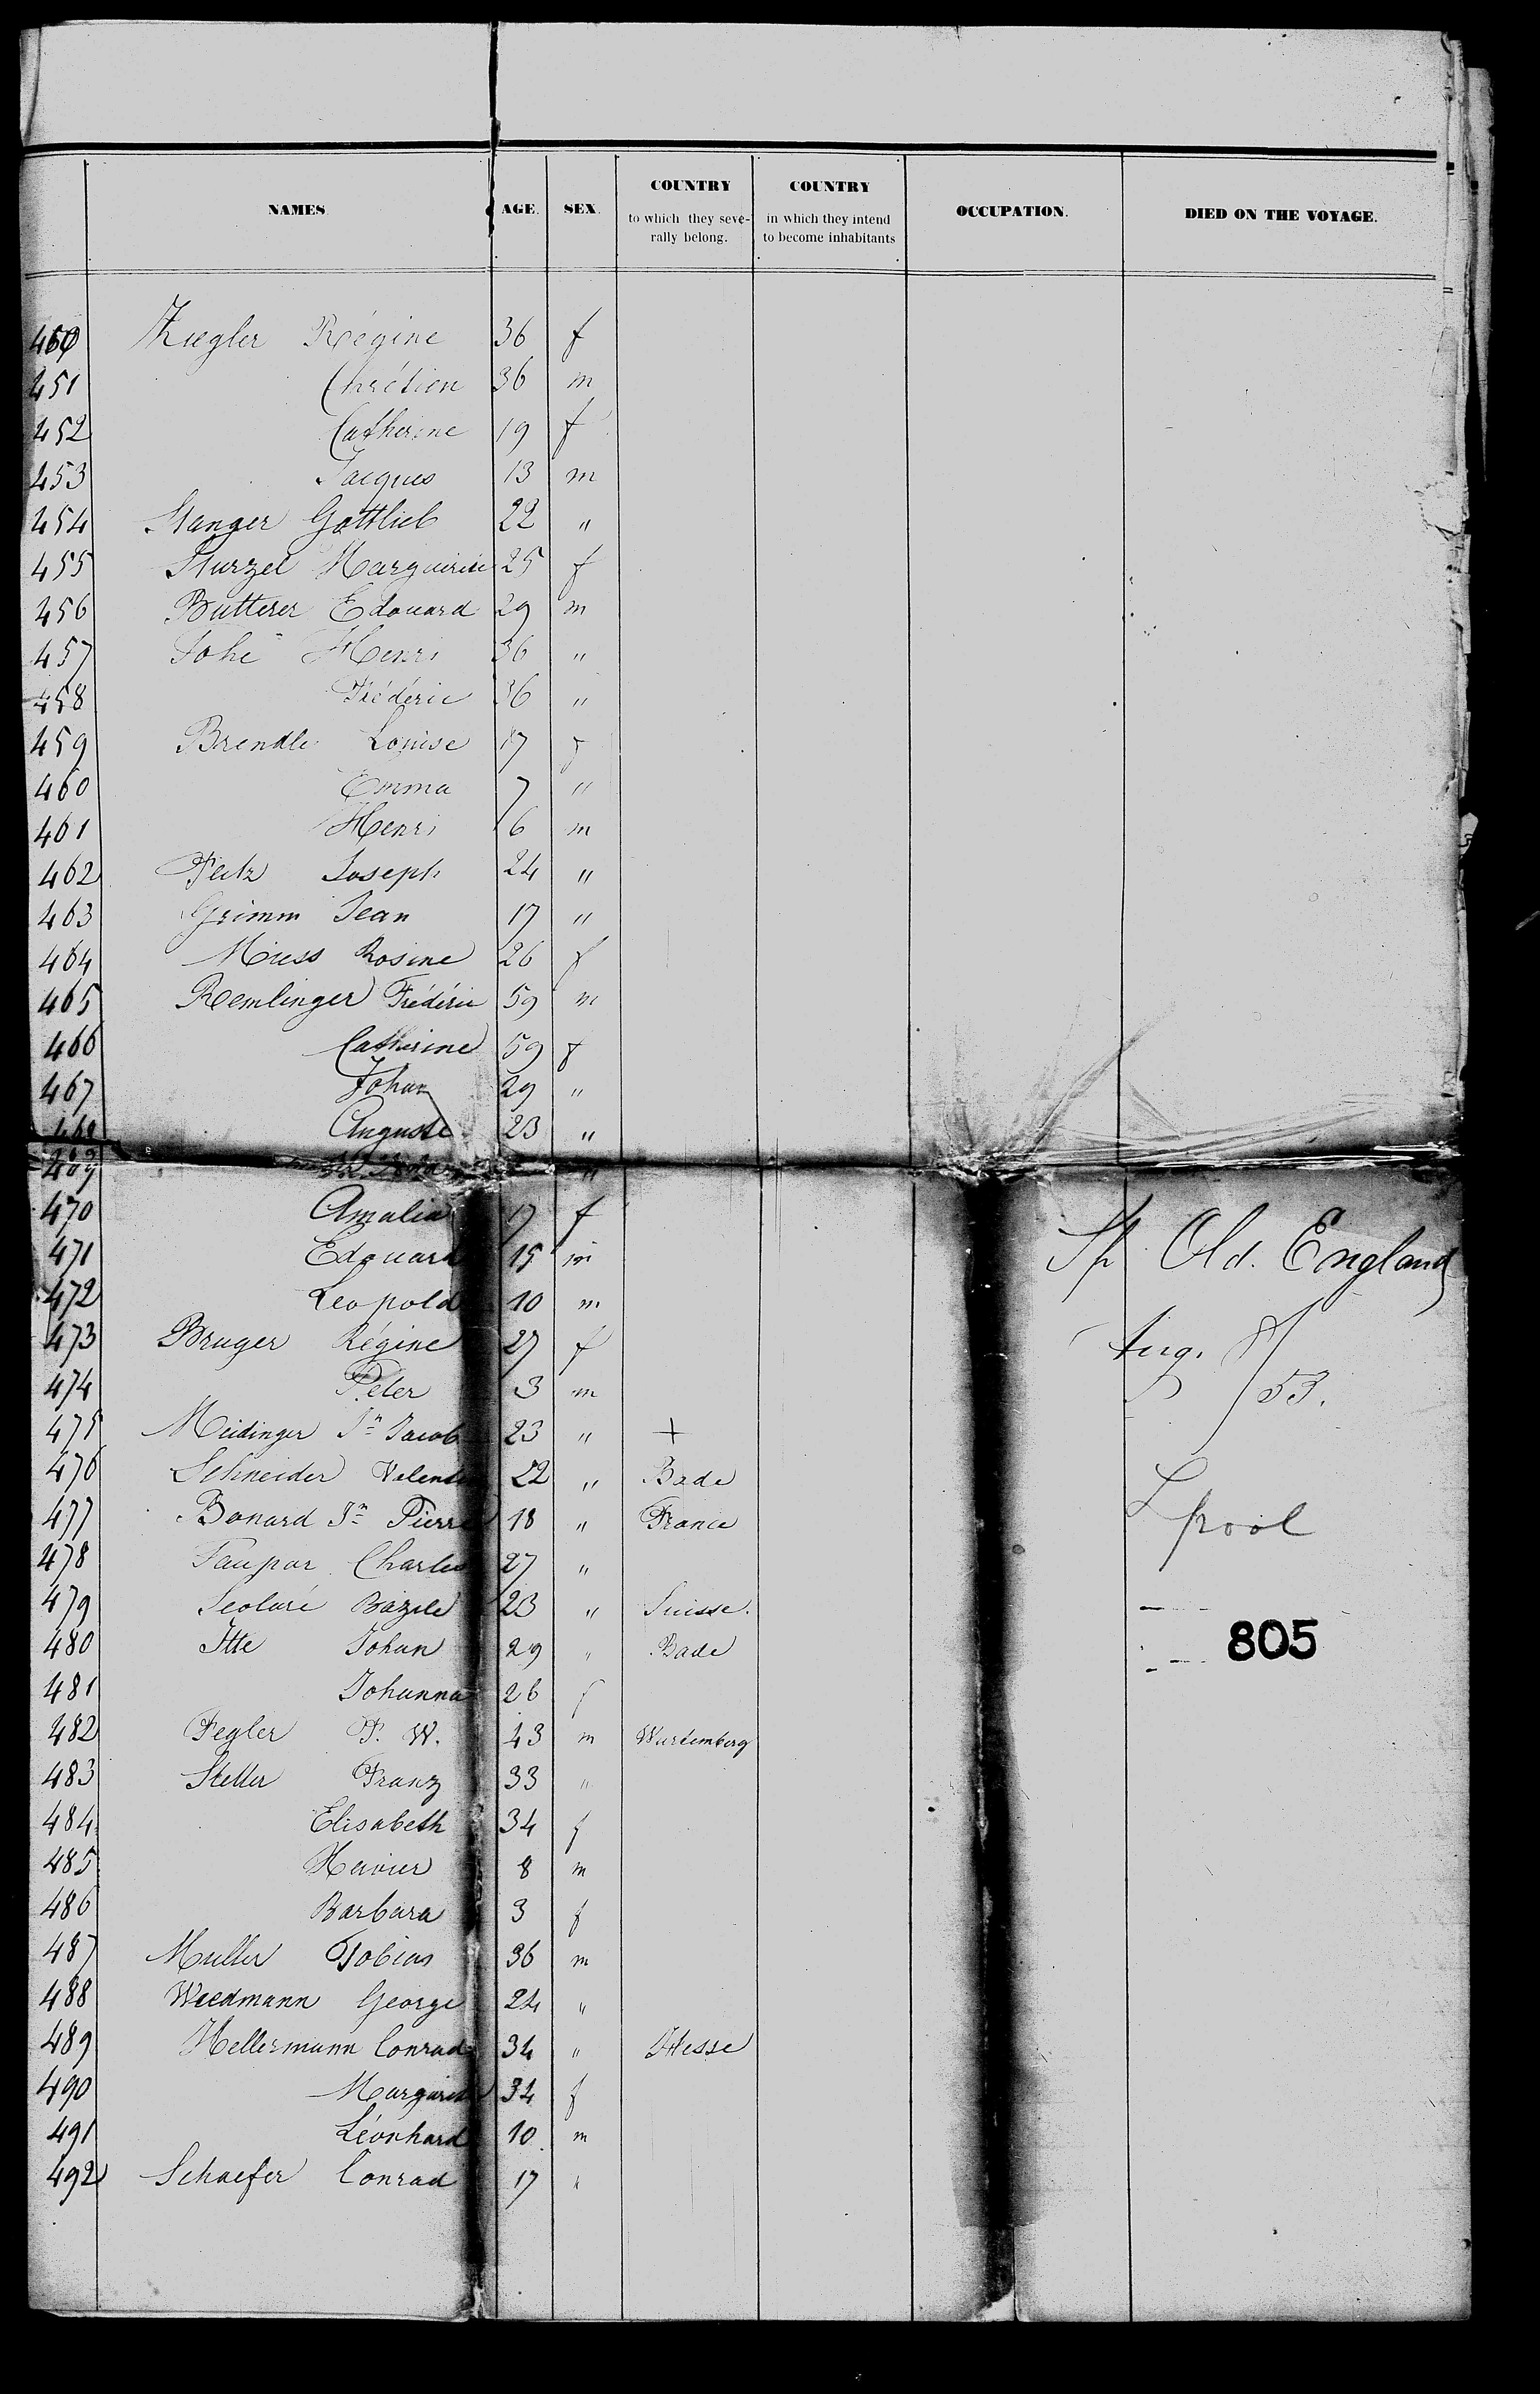 NAMES. AGE. SEX. COUNTRY to which they severally belong. COUNTRY in which they intend to become inhabitants OCCUPATION. DIED ON THE VOYAGE.
450 Ziegler Régine 36 f
451 Chrétien 36 m
452 Catherine 19 f
453 Jacques 13 m
454 Stanger Gottlieb 22 "
455 Sturzel 25 f
456 Butterer Edouard 29 m
457 Henri 36 "
458 Frédéric 36 "
459 Brendle Louise 17 f
460 Emma 7 "
461 Henri 6 m
462 Joseph 24 "
463 Grimm Jean 17 "
464 Rosine 26 f
465 Remlinger Frédéric 59 m
466 Catherine 59 f
467 Johan 29 "
468 Auguste 23 "
469 "
470 Amalia 17 f
471 Edouard 15 m
472 Leopold 10 m
473 Bruger Régine 27 f
474 Peter 3 m
475 Meidinger Jn Jacob 23 " +
476 Schneider 22 " Bade
477 Bonard Jn Pierre 18 " France
478 Faupar Charles 27 "
479 Bazile 23 " Suisse.
480 Itte Johan 29 " Bade
481 Johanna 26 f
482 Fegler F. W. 43 m Wurtemberg
483 Steller Franz 33 "
484 Elisabeth 34 f
485 8 m
486 Barbara 3 f
487 Muller Tobias 36 m
488 Weedmann George 24 "
489 Hellermann Conrad 34 " Hesse
490 34 f
491 Léonhard 10 m
492 Schaefer Conrad 17 "
Sh Old. England
Aug. 8/53.
Lpool
805